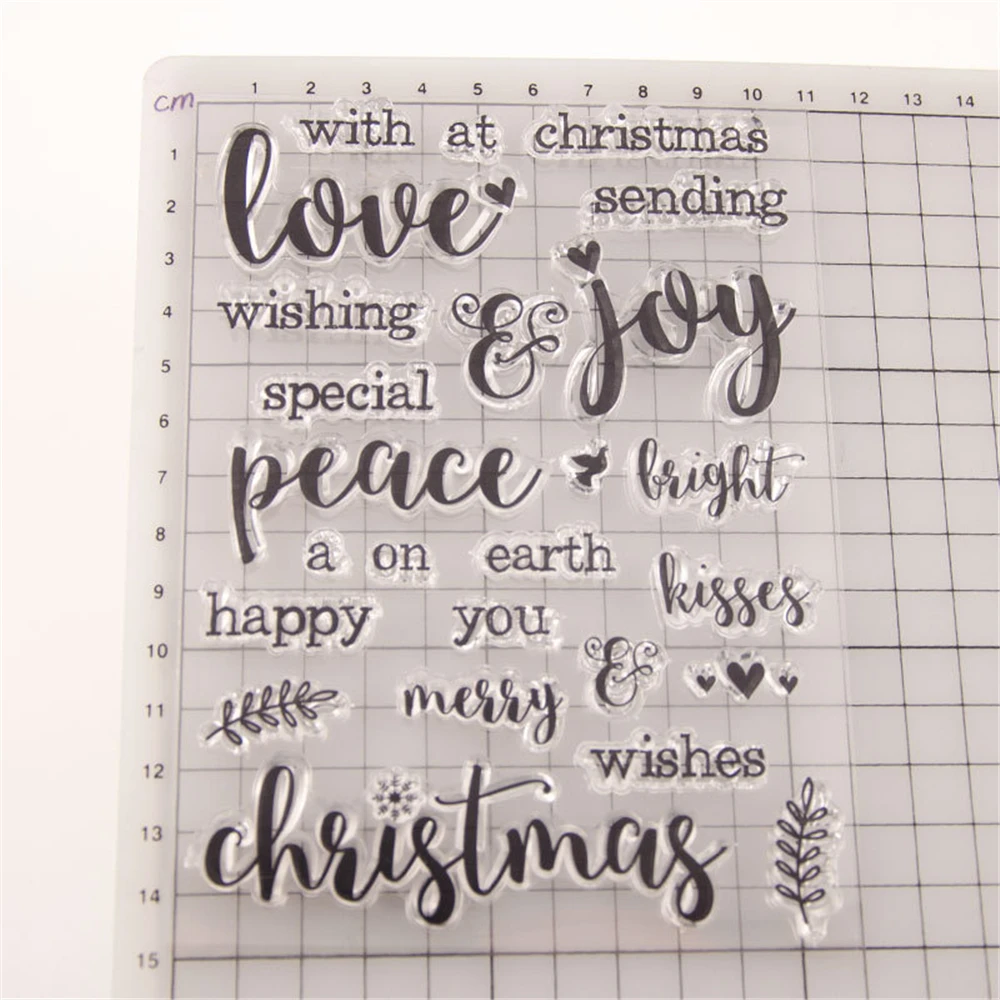 1 2 3 4 5 6 7 8 9 10 11 12 13 14
cm
with at christmas
1
love
sending
2
3
wishing & joy
4
5
special
6
peace bright
7
8
a on earth
kisses
9
happy you
10
&
merry
11
wishes
12
christmas
13
14
15